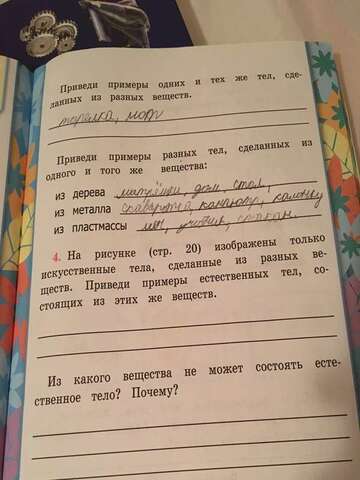 Приведи примеры одних и тех же тел, сде-
данных из разных веществ.
тарелка,
Приведи примеры разных тел, сделанных из
одного и того же вещества:
из дерева матрёшки, дом, стол,
из металла сковородка,
из пластмассы мяч, стакан.
4. На рисунке (стр. 20) изображены только
искусственные тела, сделанные из разных ве-
ществ. Приведи примеры естественных тел, со-
стоящих из этих же веществ.
Из какого вещества не может состоять есте-
ственное тело? Почему?